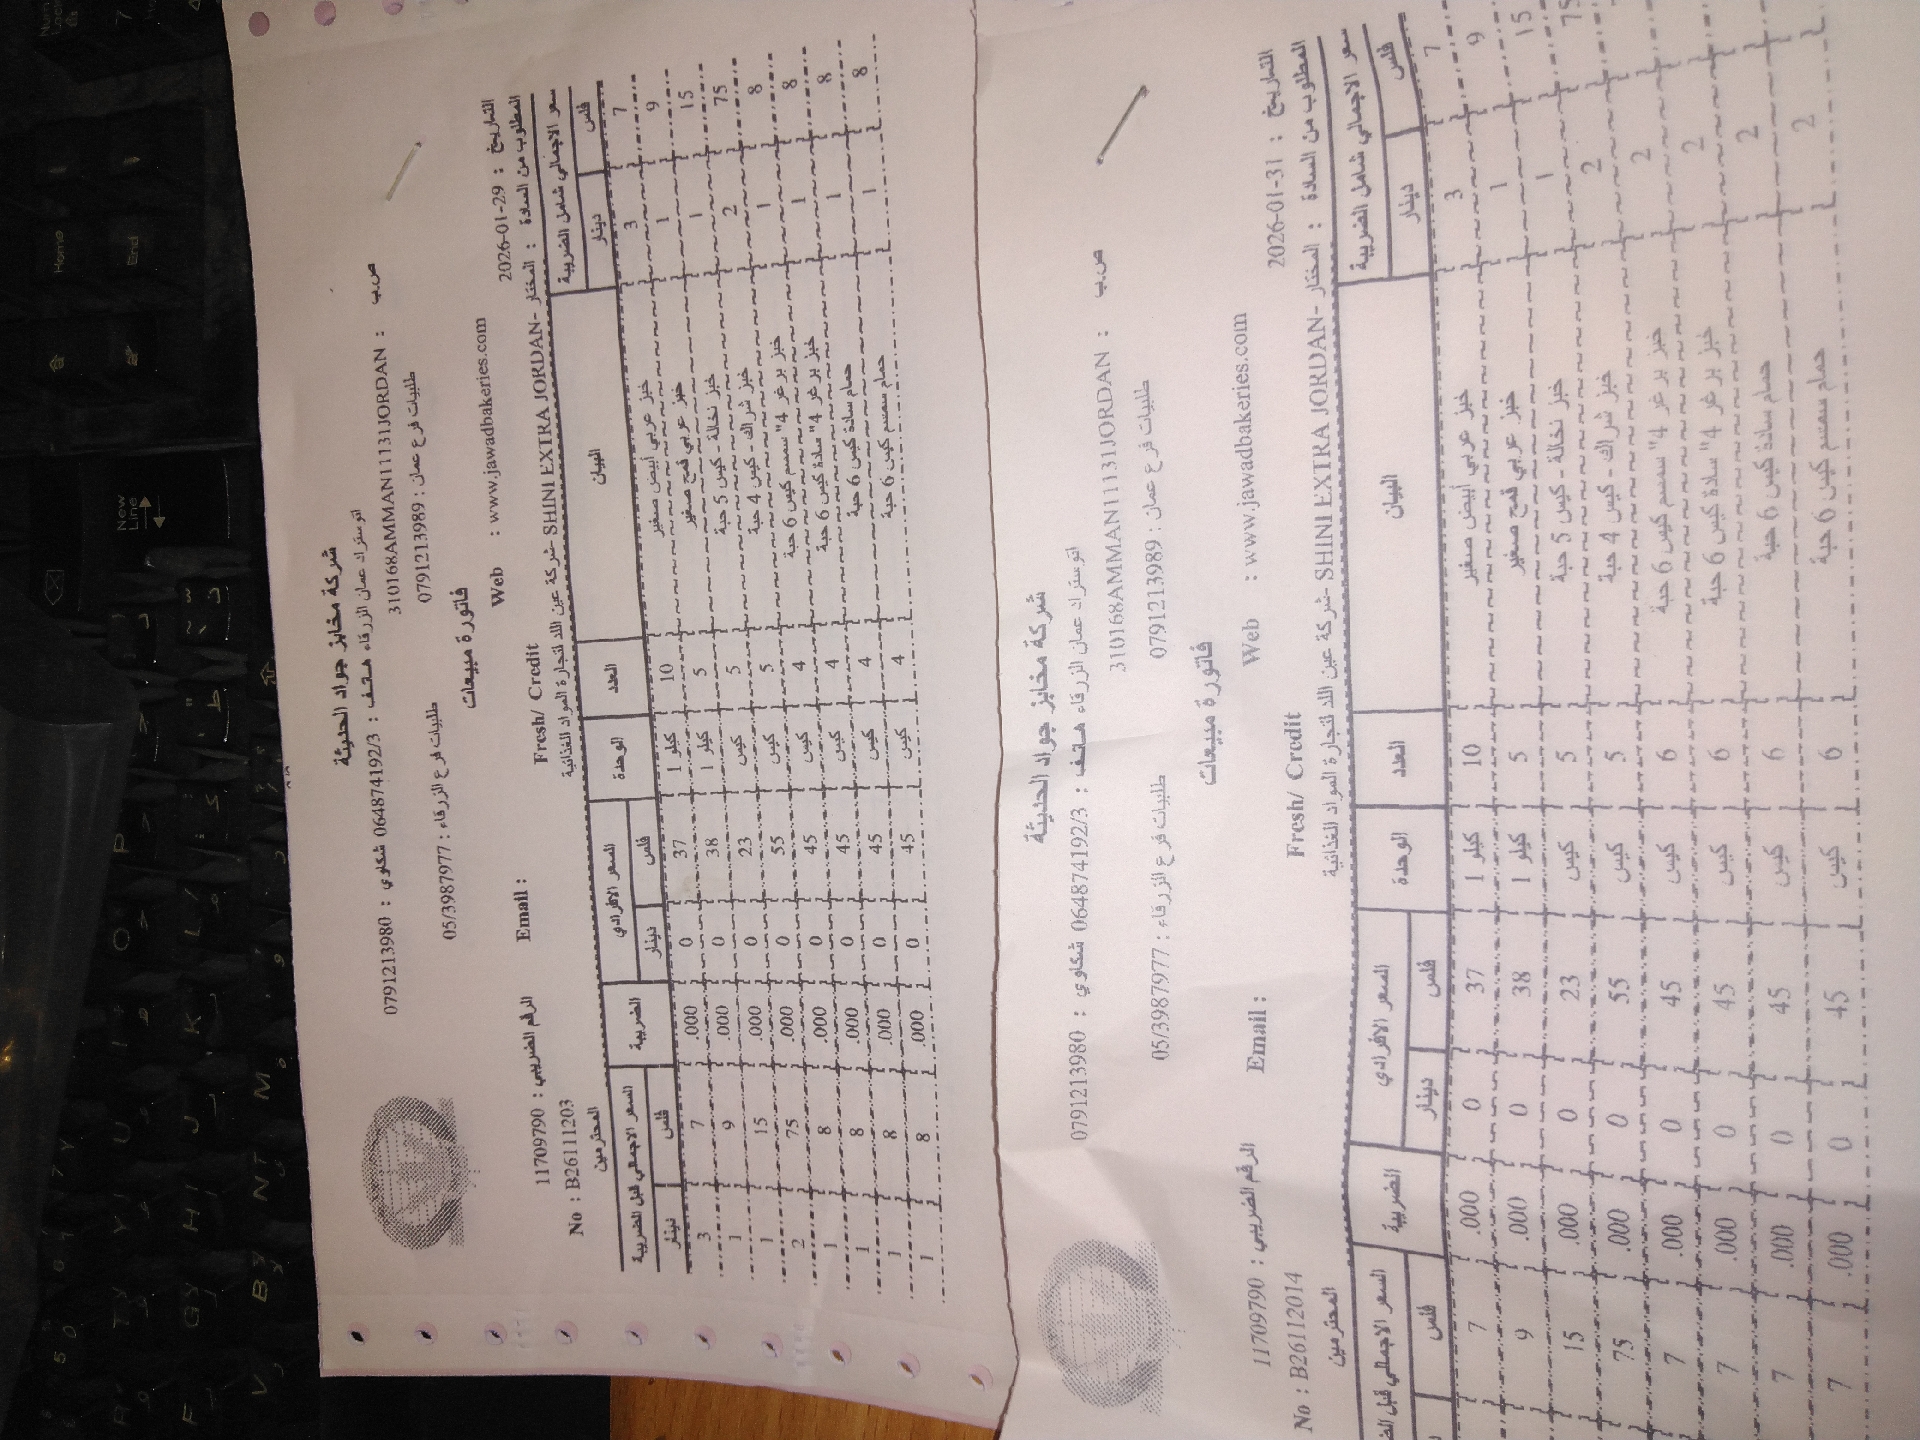 شركة مخابز جواد الحديثة
اتوستراد عمان الزرقاء هاتف : 064874192/3 شكاوي : 0791213980
ص.ب : 310168AMMAN11131JORDAN
طلبيات فرع عمان : 0791213989 طلبيات فرع الزرقاء : 05/3987977
فاتورة مبيعات
التاريخ : 2026-01-29 Web : www.jawadbakeries.com Email : الرقم الضريبي : 11709790
Fresh/ Credit No : B26111203
المطلوب من السادة : المختار -SHINI EXTRA JORDAN -شركة عين اللد لتجارة المواد الغذائية المحترمين
سعر الاجمالي شامل الضريبة البيان العدد الوحدة السعر الافرادي الضريبة السعر الاجمالي قبل الضريبة
فلس دينار فلس دينار فلس دينار
7 3 خبز عربي أبيض صغير 10 كيلو 1 37 0 .000 7 3
9 1 خبز عربي قمح صغير 5 كيلو 1 38 0 .000 9 1
15 1 خبز نخالة - كيس 5 حبة 5 كيس 23 0 .000 15 1
75 2 خبز شراك - كيس 4 حبة 5 كيس 55 0 .000 75 2
8 1 خبز برغر 4" سمسم كيس 6 حبة 4 كيس 45 0 .000 8 1
8 1 خبز برغر 4" سادة كيس 6 حبة 4 كيس 45 0 .000 8 1
8 1 حمام سادة كيس 6 حبة 4 كيس 45 0 .000 8 1
8 1 حمام سمسم كيس 6 حبة 4 كيس 45 0 .000 8 1
شركة مخابز جواد الحديثة
اتوستراد عمان الزرقاء هاتف : 064874192/3 شكاوي : 0791213980
ص.ب : 310168AMMAN11131JORDAN
طلبيات فرع عمان : 0791213989 طلبيات فرع الزرقاء : 05/3987977
فاتورة مبيعات
التاريخ : 2026-01-31 Web : www.jawadbakeries.com Email : الرقم الضريبي : 11709790
Fresh/ Credit No : B26112014
المطلوب من السادة : المختار -SHINI EXTRA JORDAN -شركة عين اللد لتجارة المواد الغذائية المحترمين
سعر الاجمالي شامل الضريبة البيان العدد الوحدة السعر الافرادي الضريبة السعر الاجمالي قبل
فلس دينار فلس دينار فلس
7 3 خبز عربي أبيض صغير 10 كيلو 1 37 0 .000 7
9 1 خبز عربي قمح صغير 5 كيلو 1 38 0 .000 9
15 1 خبز نخالة - كيس 5 حبة 5 كيس 23 0 .000 15
75 2 خبز شراك - كيس 4 حبة 5 كيس 55 0 .000 75
2 خبز برغر 4" سمسم كيس 6 حبة 6 كيس 45 0 .000 7
2 خبز برغر 4" سادة كيس 6 حبة 6 كيس 45 0 .000 7
2 حمام سادة كيس 6 حبة 6 كيس 45 0 .000 7
2 حمام سمسم كيس 6 حبة 6 كيس 45 0 .000 7
Home
End
New
Line